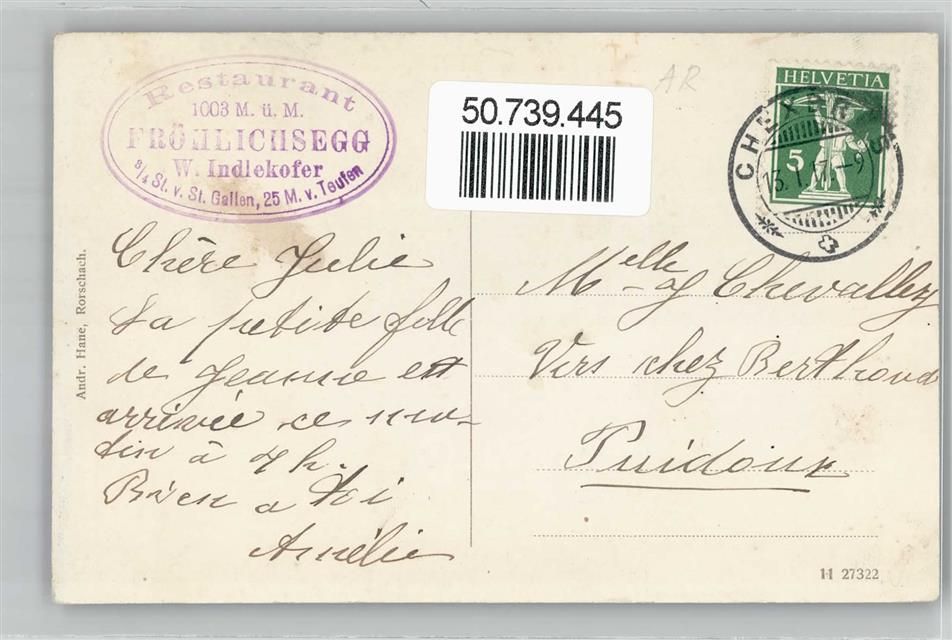 Restaurant
1003 M. ü. M.
FRÖHLICHSEGG
W. Indlekofer
¾ St. v. St. Gallen, 25 M. v. Teufen
50.739.445
AR
HELVETIA
5
CHEXBRES
13. I. 17. –9
Andr. Hane, Rorschach.
Chère Julie
La petite fille
de Jeanne est
arrivée ce ma-
tin à 7 h.
Bien a toi
Amélie
Melle J Chevalley
Vers chez Berthoud
Puidoux
11 27322